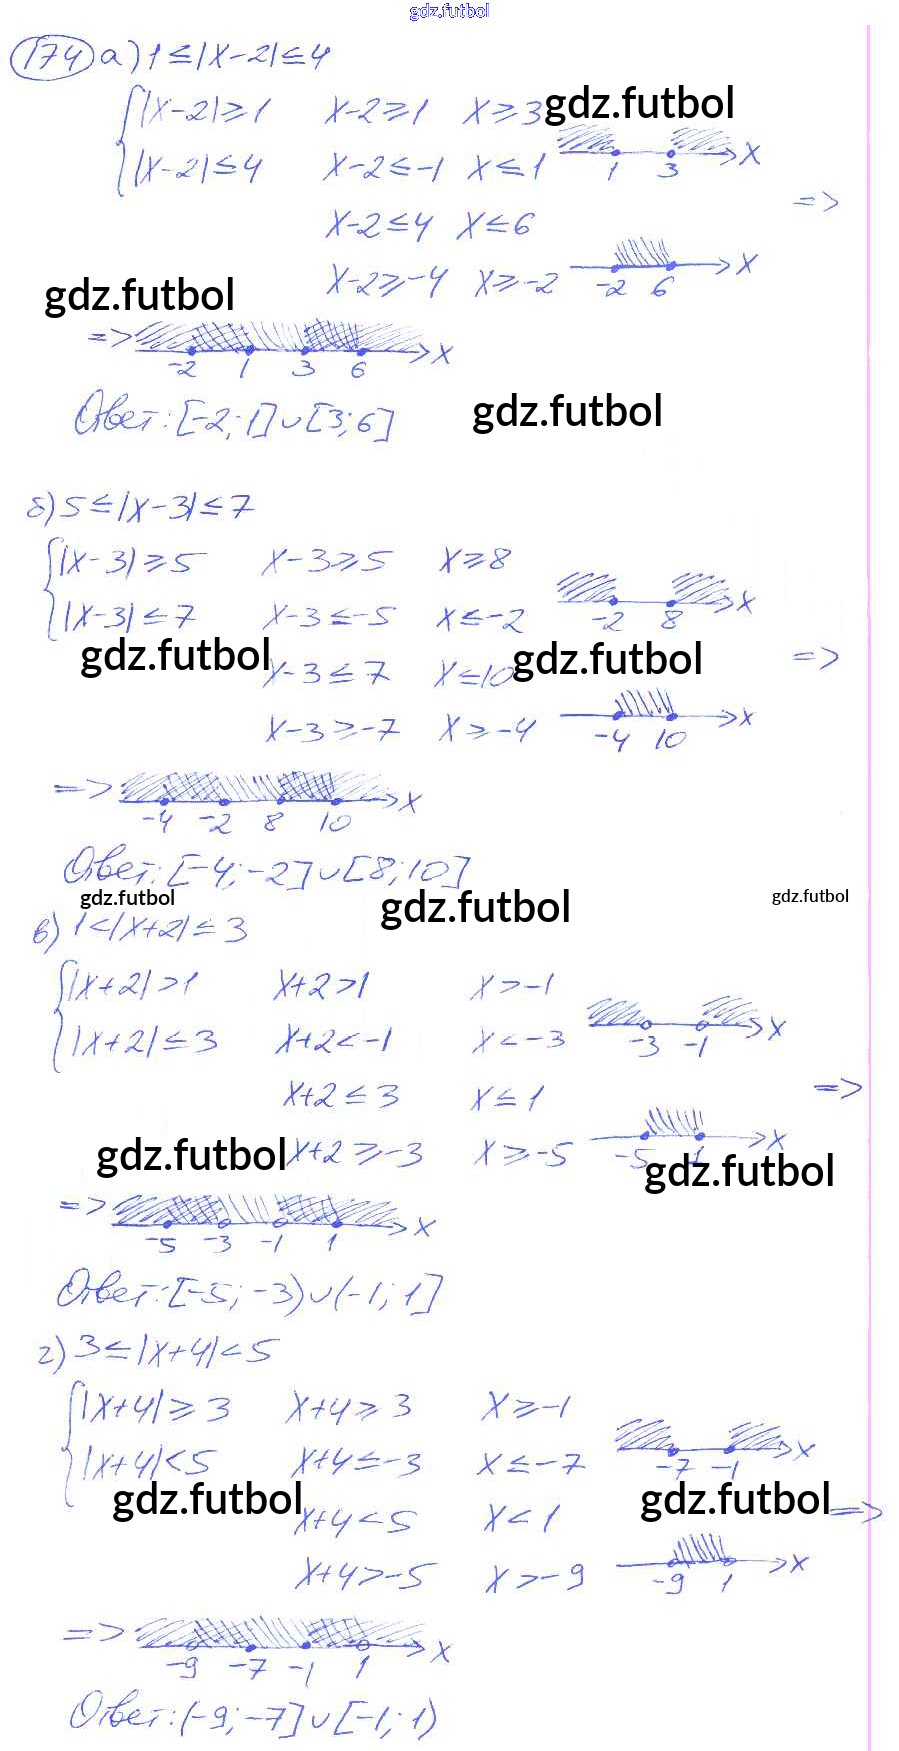 gdz.futbol
174 а) 1 ≤ |x-2| ≤ 4
{ |x-2| ≥ 1 x-2 ≥ 1 x ≥ 3 gdz.futbol
|x-2| ≤ 4 x-2 ≤ -1 x ≤ 1 1 3 x
x-2 ≤ 4 x ≤ 6 =>
x-2 ≥ -4 x ≥ -2 -2 6 x
gdz.futbol
=> -2 1 3 6 x
Ответ: [-2; 1] ∪ [3; 6] gdz.futbol
б) 5 ≤ |x-3| ≤ 7
{ |x-3| ≥ 5 x-3 ≥ 5 x ≥ 8
|x-3| ≤ 7 x-3 ≤ -5 x ≤ -2 -2 8 x
gdz.futbol x-3 ≤ 7 x ≤ 10 gdz.futbol =>
x-3 ≥ -7 x ≥ -4 -4 10 x
=> -4 -2 8 10 x
Ответ: [-4; -2] ∪ [8; 10]
gdz.futbol gdz.futbol gdz.futbol
в) 1 < |x+2| ≤ 3
{ |x+2| > 1 x+2 > 1 x > -1
|x+2| ≤ 3 x+2 < -1 x < -3 -3 -1 x
x+2 ≤ 3 x ≤ 1 =>
gdz.futbol x+2 ≥ -3 x ≥ -5 -5 1 x
gdz.futbol
=> -5 -3 -1 1 x
Ответ: [-5; -3) ∪ (-1; 1]
г) 3 ≤ |x+4| < 5
{ |x+4| ≥ 3 x+4 ≥ 3 x ≥ -1
|x+4| < 5 x+4 ≤ -3 x ≤ -7 -7 -1 x
gdz.futbol x+4 < 5 x < 1 gdz.futbol =>
x+4 > -5 x > -9 -9 1 x
=> -9 -7 -1 1 x
Ответ: (-9; -7] ∪ [-1; 1)